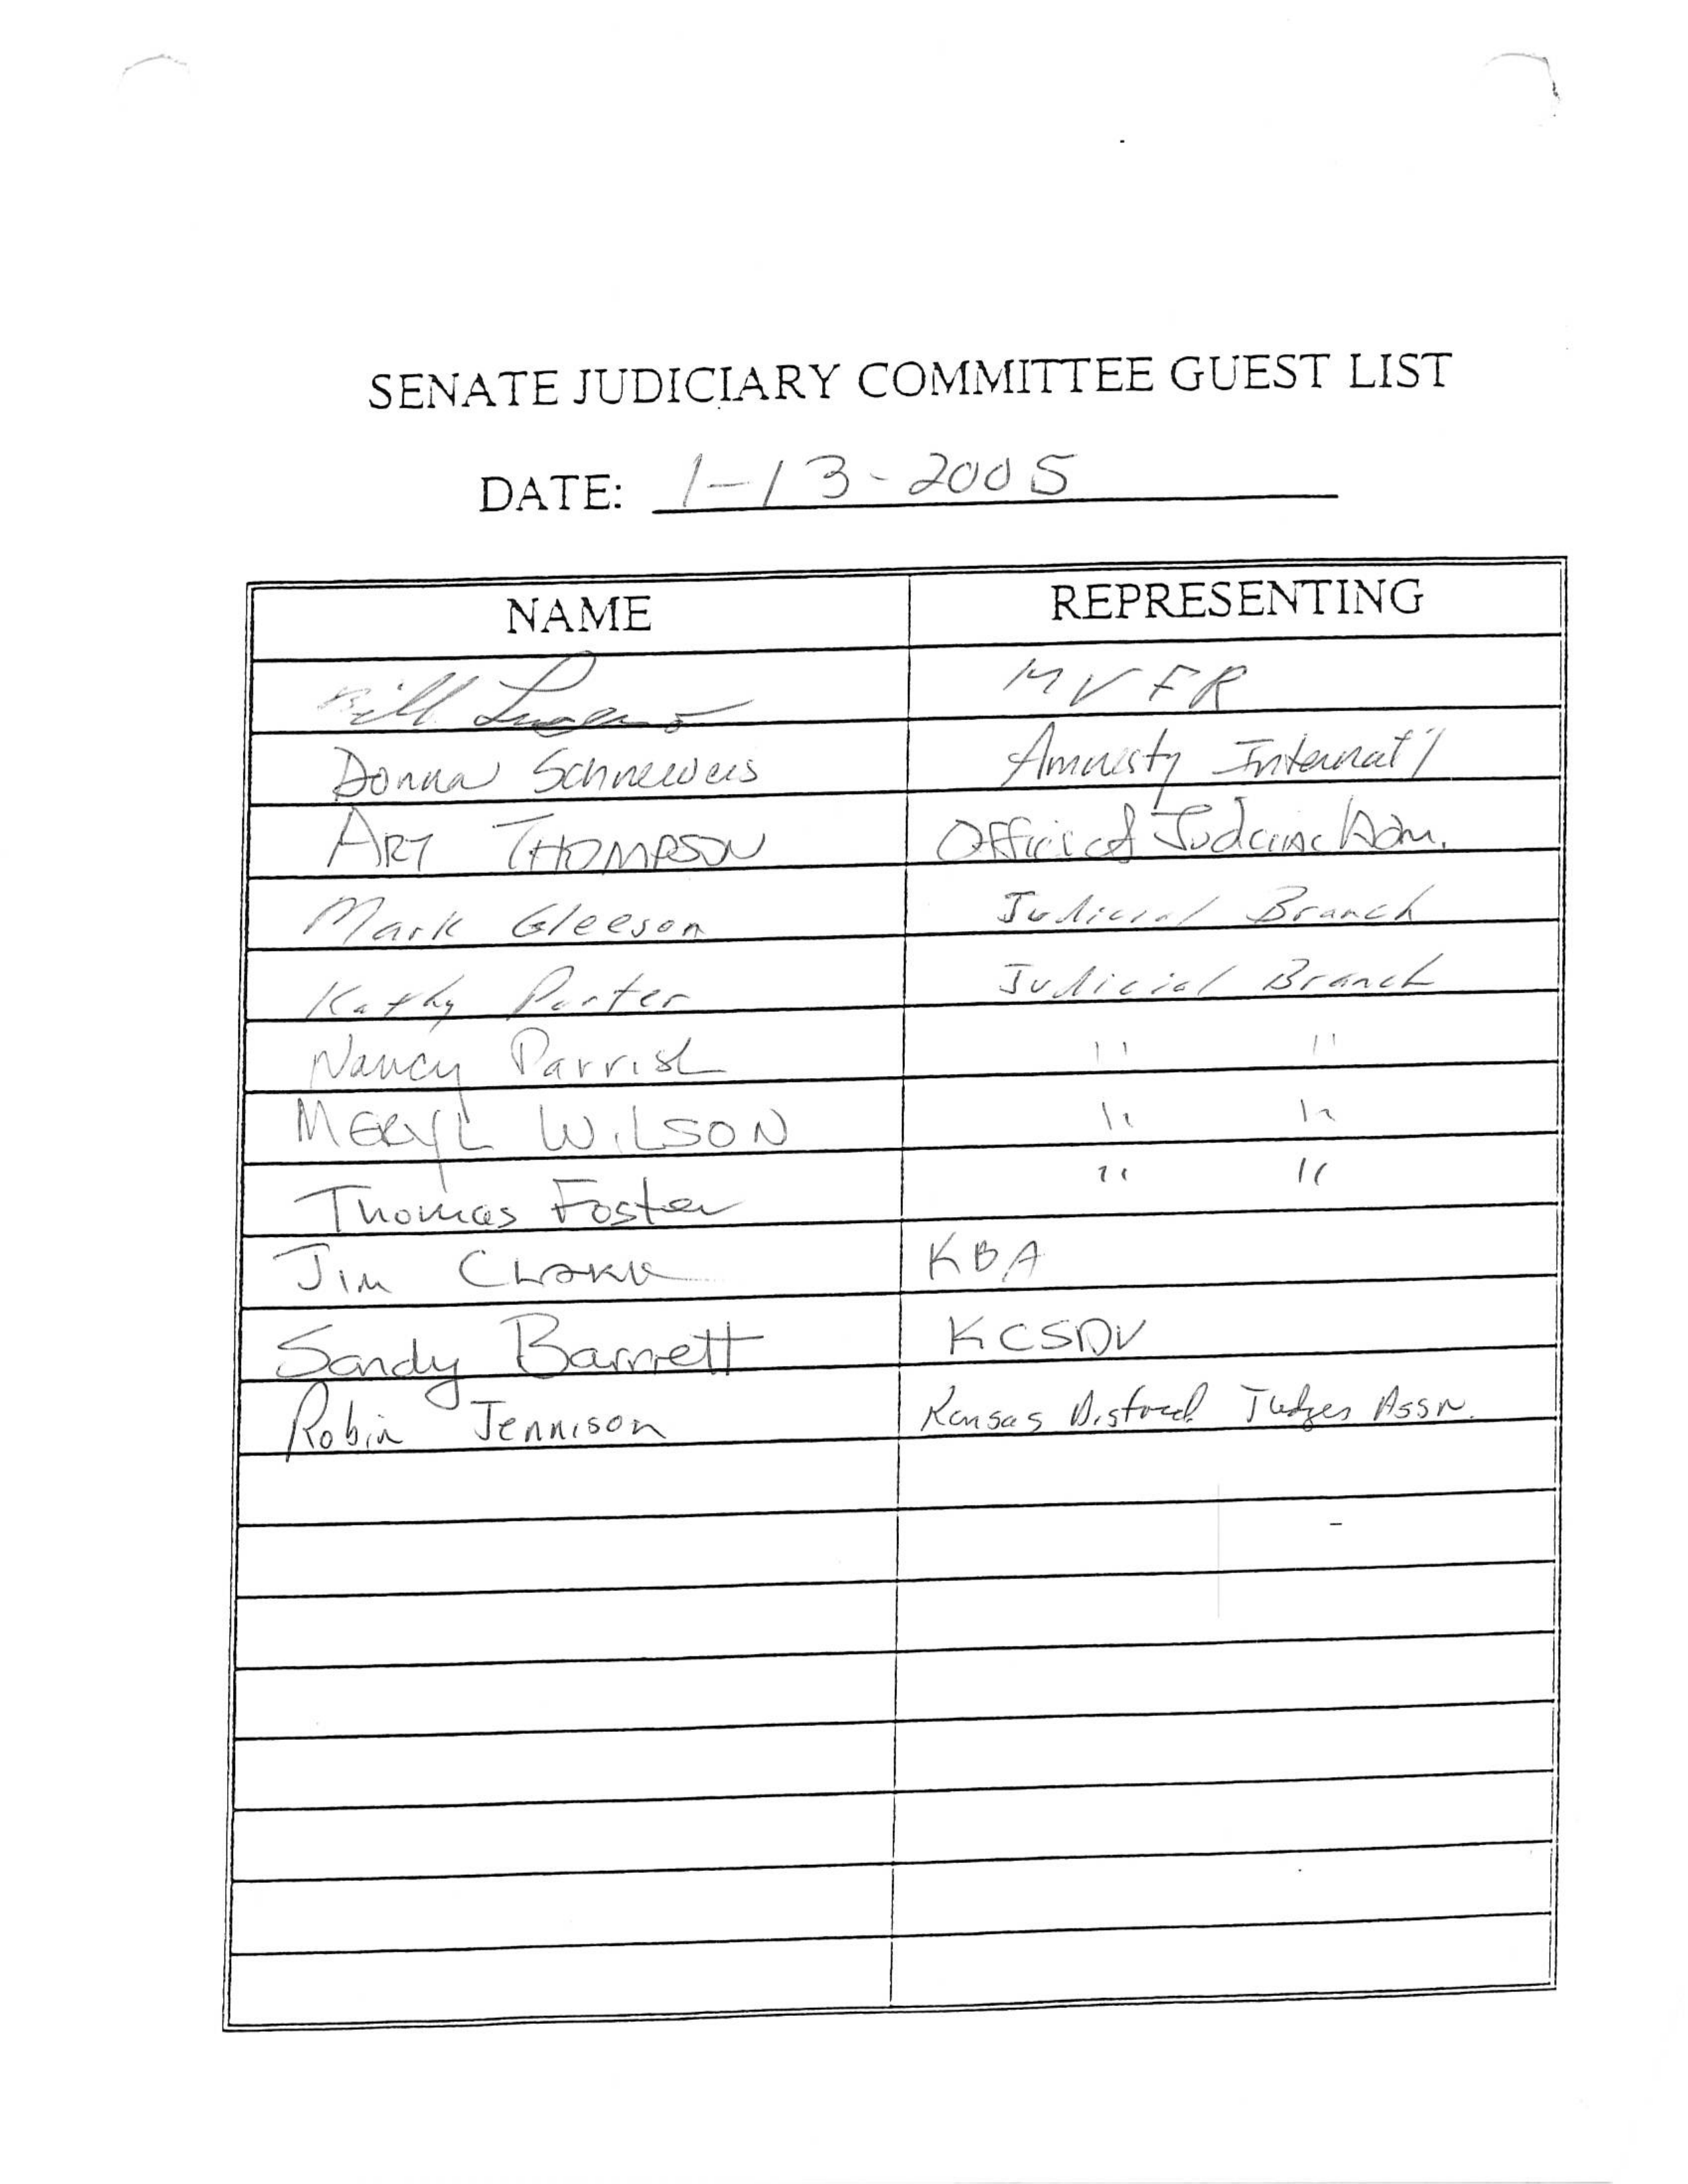 SENATE JUDICIARY COMMITTEE GUEST LIST
DATE: 1-13-2005
NAME REPRESENTING
Bill MVFR
Donna Schneweis Amnesty Internat'l
ART THOMPSON Office of Adm.
Mark Gleeson Judicial Branch
Kathy Porter Judicial Branch
Nancy Parrish " "
MERYL WILSON " "
Thomas Foster " "
Jim Clark KBA
Sandy Barnett KCSDV
Robin Jennison Kansas District Judges Assn.